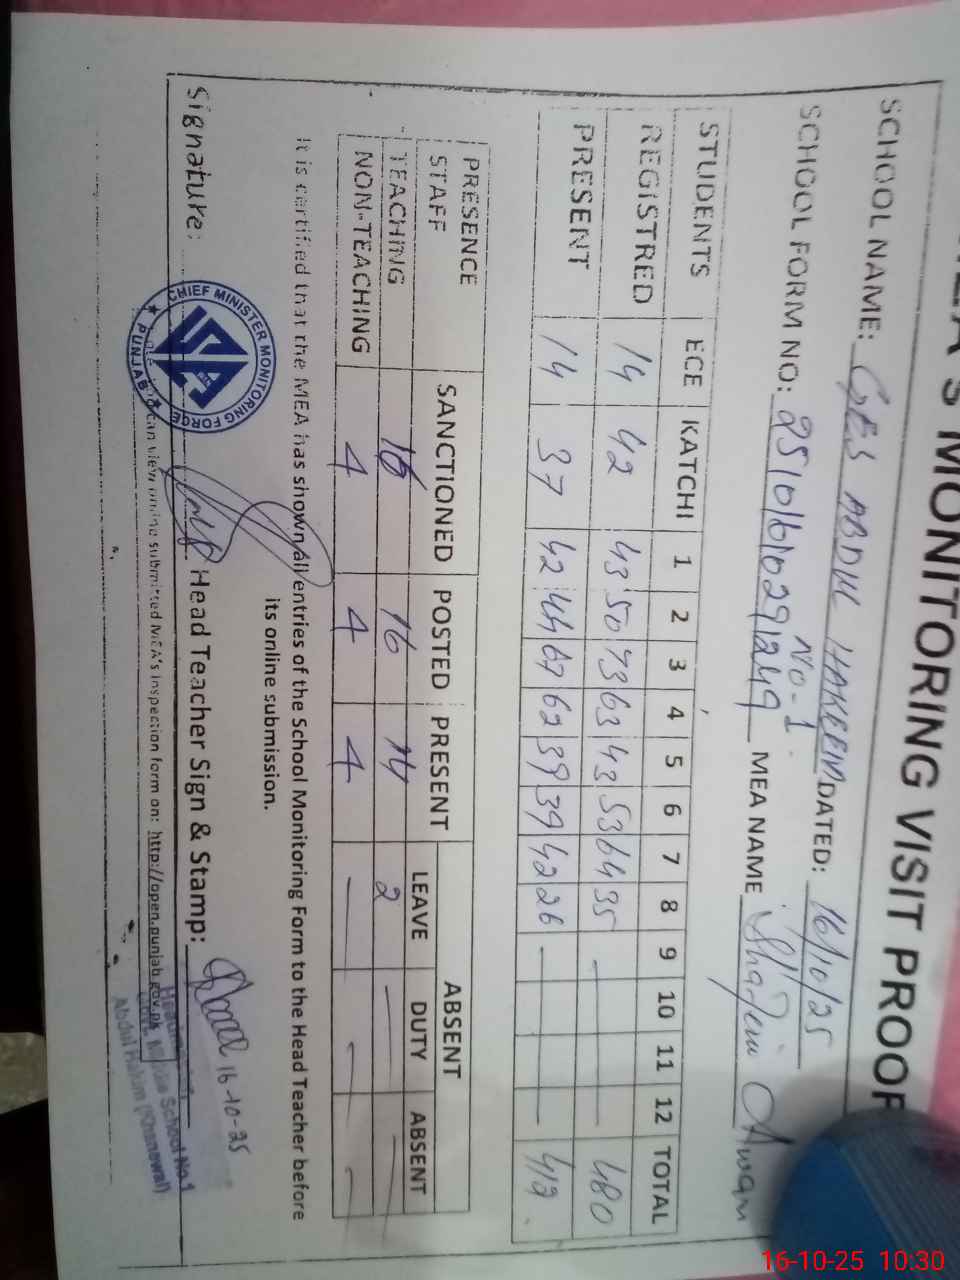 MEA'S MONITORING VISIT PROOF
SCHOOL NAME: GES ABDUL HAKEEM DATED: 16/10/25
No-1
SCHOOL FORM NO: 25101601029249 MEA NAME Awan
STUDENTS ECE KATCHI 1 2 3 4 5 6 7 8 9 10 11 12 TOTAL
REGISTRED 14 42 43 50 73 63 43 53 64 35 — 480
PRESENT 14 37 42 44 67 62 39 39 42 26 — 412
PRESENCE SANCTIONED POSTED PRESENT ABSENT
STAFF LEAVE DUTY ABSENT
TEACHING 16 16 14 2 — —
NON-TEACHING 4 4 4 — — —
It is certified that the MEA has shown all entries of the School Monitoring Form to the Head Teacher before
its online submission.
Signature: Head Teacher Sign & Stamp: 16-10-25
CHIEF MINISTER MONITORING FORCE
PUNJAB
can view online submitted MEA's inspection form on: http://open.punjab.gov.pk
School No.1
Abdul Hakim (Khanewal)
16-10-25 10:30